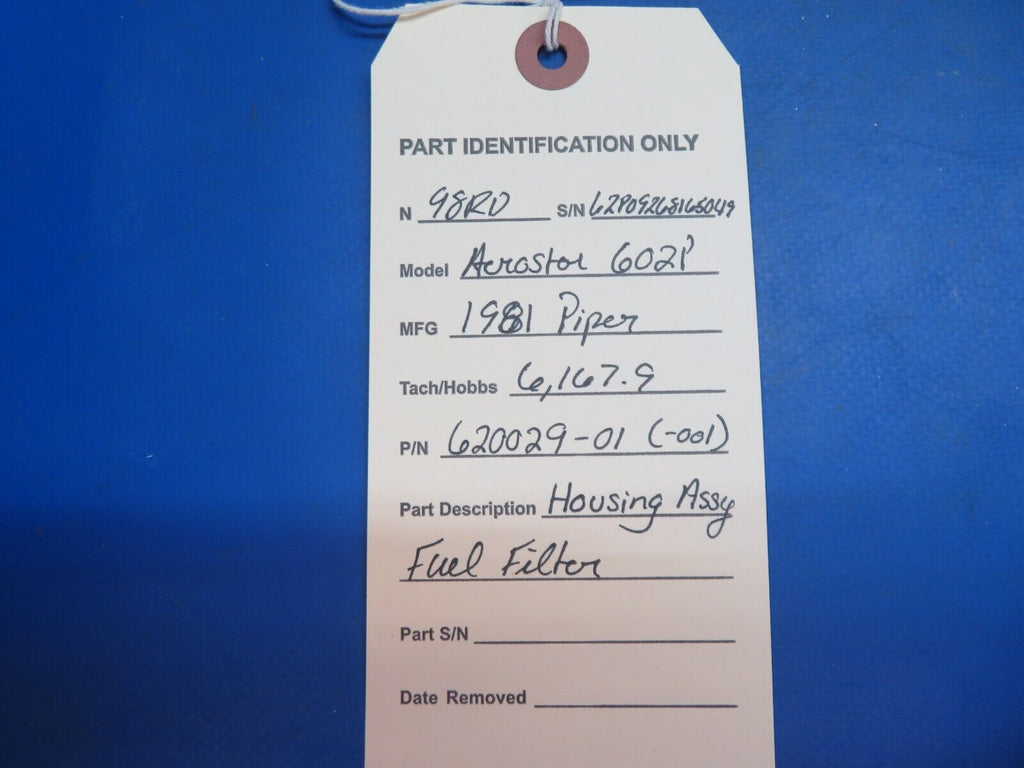 PART IDENTIFICATION ONLY
N 98RD S/N 62P09268165049
Model Aerostar 602P
MFG 1981 Piper
Tach/Hobbs 6,167.9
P/N 620029-01 (-001)
Part Description Housing Assy
Fuel Filter
Part S/N
Date Removed